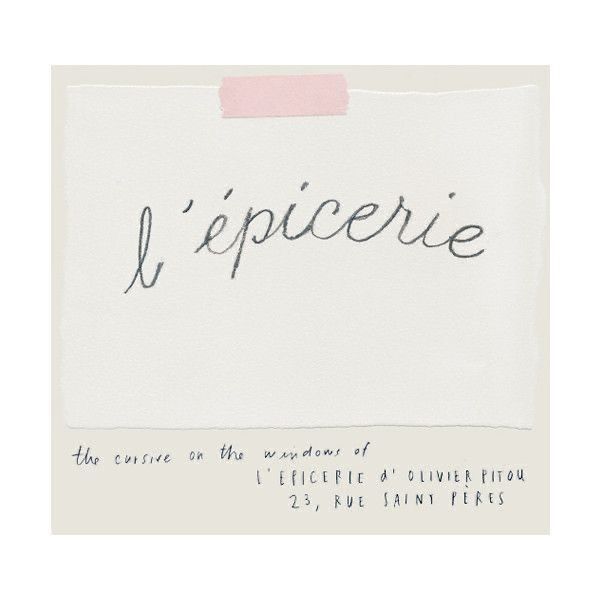 l'épicerie
the cursive on the windows of
L'EPICERIE d'OLIVIER PITOU
23, RUE SAINT PÈRES